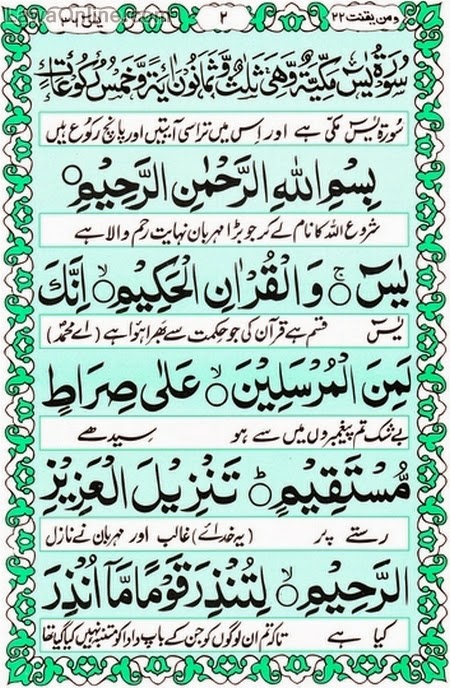 ومن یقنت ۲۲
۲
یٰسٓ ۳۶
سُوْرَةُ يٰسٓ مَكِّيَّةٌ وَّهِيَ ثَلٰثٌ وَّثَمَانُوْنَ اٰيَةً وَّخَمْسُ رُكُوْعَاتٍ
سورۃ یٰسٓ مکی ہے اور اس میں تراسی آیتیں اور پانچ رکوع ہیں
بِسْمِ اللهِ الرَّحْمٰنِ الرَّحِيْمِ۝
شروع اللہ کا نام لے کر جو بڑا مہربان نہایت رحم والا ہے
يٰسٓ ۝ۚ وَالْقُرْاٰنِ الْحَكِيْمِ ۝ۙ اِنَّكَ
یٰسٓ قسم ہے قرآن کی جو حکمت سے بھرا ہوا ہے (اے محمدؐ)
لَمِنَ الْمُرْسَلِيْنَ ۝ۙ عَلٰى صِرَاطٍ
بے شک تم پیغمبروں میں سے ہو سیدھے
مُّسْتَقِيْمٍ ۝ؕ تَنْزِيْلَ الْعَزِيْزِ
رستے پر (یہ خدائے) غالب اور مہربان نے نازل
الرَّحِيْمِ ۝ۙ لِتُنْذِرَ قَوْمًا مَّاۤ اُنْذِرَ
کیا ہے تاکہ تم ان لوگوں کو جن کے باپ دادا کو متنبہ نہیں کیا گیا تھا